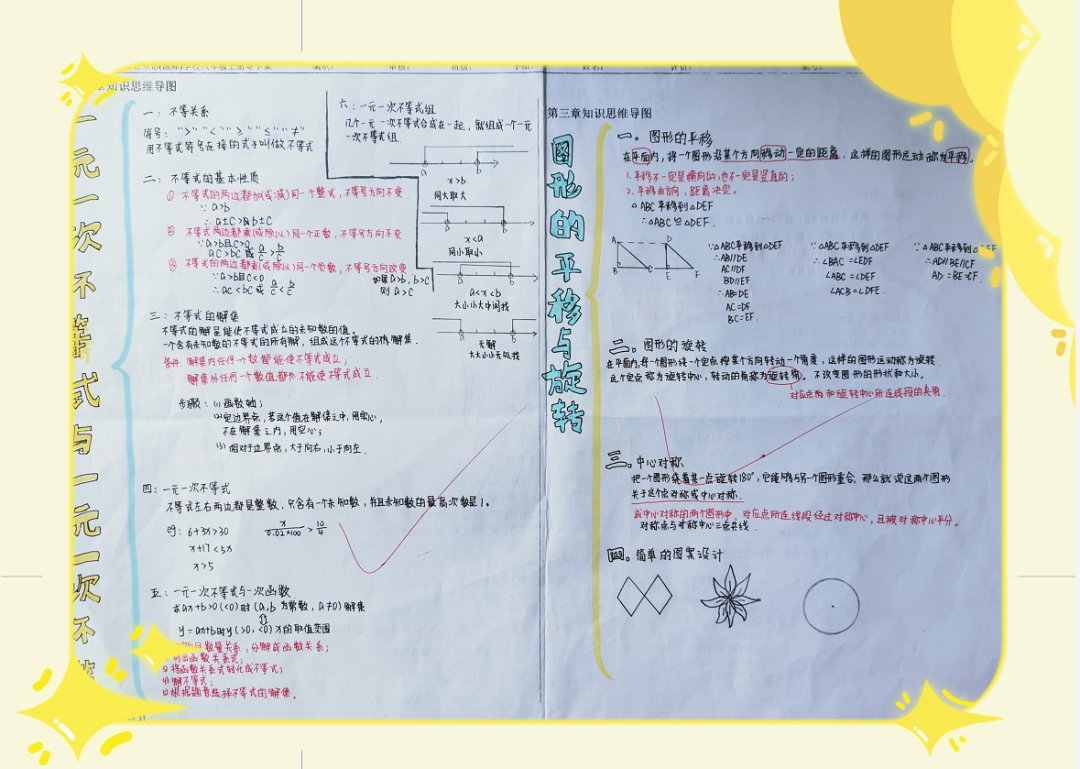 章知识思维导图
一元一次不等式与一元一次不等
一：不等关系
符号："＞""＜""≥""≤""≠"
用不等式符号连接的式子叫做不等式
二：不等式的基本性质
① 不等式的两边都加(或减)同一个整式，不等号方向不变
∵ a>b
∴ a±c>b±c
② 不等式两边都乘(或除以)同一个正数，不等号方向不变
∵a>b且c>0
∴ac>bc 或 a/c > b/c
③ 不等式的两边都乘(或除以)同一个负数，不等号方向改变
∵a>b且c<0
∴ac<bc或 a/c < b/c
如果a>b，b>c
则a>c
三：不等式的解集
不等式的解是能使不等式成立的未知数的值。
一个含有未知数的不等式的所有解，组成这个不等式的解集.
条件：解集内任何一个数都能使不等式成立；
解集外任何一个数值都不能使不等式成立.
步骤：(1)画数轴；
(2)定边界点，若这个值在解集之中，用实心，
不在解集之内，用空心；
(3)相对于边界点，大于向右，小于向左.
四：一元一次不等式
不等式左右两边都是整数，只含有一个未知数，并且未知数的最高次数是1。
6+3x>30
x/0.02×100 > 10/4
x+17<5x
x>5
五：一元一次不等式与一次函数
求ax+b>0(<0)时(a,b为常数，a≠0)解集
y=ax+b时y(>0,<0)x的取值范围
数量关系，分解成函数关系；
列出函数关系式；
③将函数关系式转化成不等式；
④解不等式；
⑤根据题意选择不等式的解集.
六：一元一次不等式组
几个一元一次不等式合成在一起，就组成一个一元
一次不等式组.
a b
x>b
同大取大
a b
x<a
同小取小
a b
a<x<b
大小小大中间找
a b
无解
大大小小无处找
第三章知识思维导图
图形的平移与旋转
一。图形的平移
在平面内，将一个图形沿某个方向移动一定的距离，这样的图形运动称为平移.
1.平移不一定是横向的，也不一定是竖直的；
2.平移由方向，距离决定。
△ABC平移到△DEF
∴△ABC≌△DEF
A D
B C E F
∵△ABC平移到△DEF
∴AB∥DE
AC∥DF
BD∥EF
∴AB=DE
AC=DF
BC=EF.
∵△ABC平移到△DEF
∴∠BAC=∠EDF
∠ABC=∠DEF
∠ACB=∠DFE.
∵△ABC平移到△DEF
∴AD∥BE∥CF
AD=BE=CF.
二。图形的旋转
在平面内，将一个图形绕一个定点按某个方向转动一个角度，这样的图形运动称为旋转.
这个定点称为旋转中心，转动的角称为旋转角。不改变图形的形状和大小。
对应点和旋转中心所连线段的夹角.
三。中心对称
把一个图形绕着某一点旋转180°，它能够与另一个图形重合，那么就说这两个图形
关于这个点对称或中心对称.
成中心对称的两个图形中，对应点所连线段经过对称中心，且被对称中心平分。
对称点与对称中心三点共线.
四。简单的图案设计